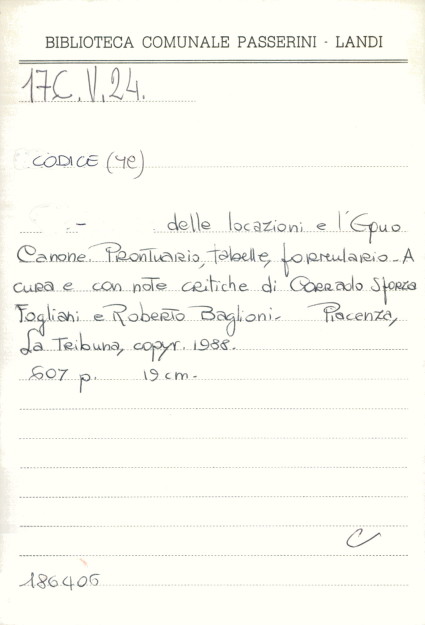 BIBLIOTECA COMUNALE PASSERINI - LANDI
17C.V.24.
CODICE (4e)
.- delle locazioni e l'Equo
Canone. Prontuario, tabelle, formulario - A
cura e con note critiche di Corrado Sforza
Fogliani e Roberto Baglioni - Piacenza,
La Tribuna, copyr. 1988.
607 p. 19 cm.
C
186406